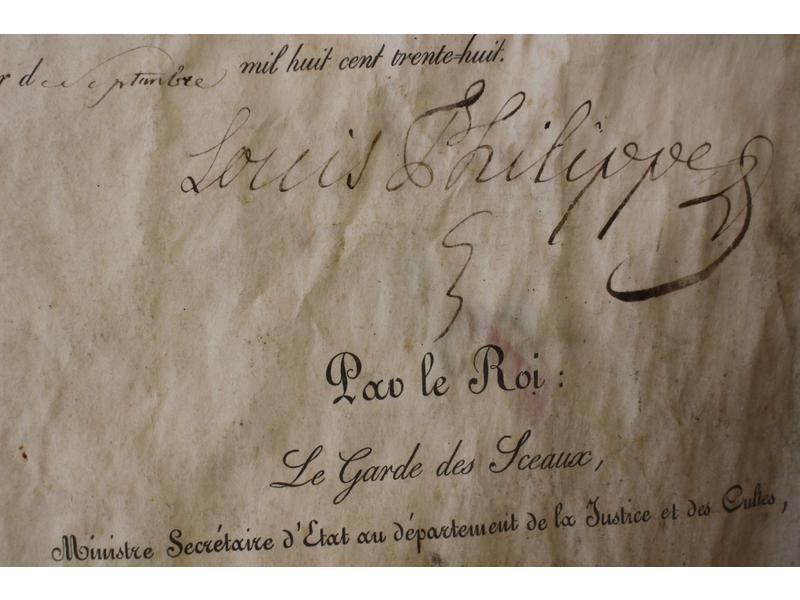 r de Septembre mil huit cent trente-huit.
Louis Philippe
Par le Roi :
Le Garde des Sceaux,
Ministre Secrétaire d'Etat au département de la Justice et des Cultes,